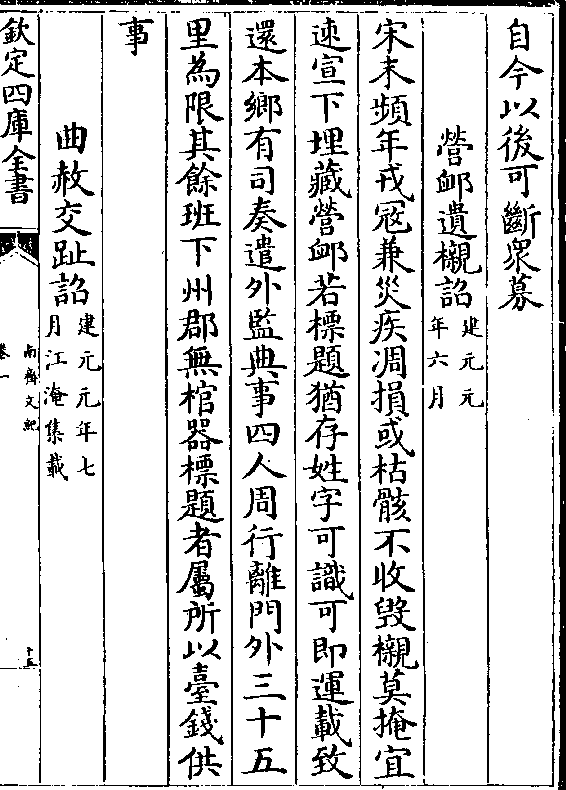 自今以後可斷衆募
營䘏遺櫬詔建元元
年六月
宋末頻年戎冦兼災疾凋損或枯骸不收毁櫬莫掩宜
速宣下埋藏營䘏若標題猶存姓字可識可即運載致
還本鄉有司奏遣外監典事四人周行離門外三十五
里為限其餘班下州郡無棺器標題者屬所以臺錢供
事
曲赦交趾詔建元元年七
月江淹集載
欽定四庫全書
南齊文紀
卷一
十五